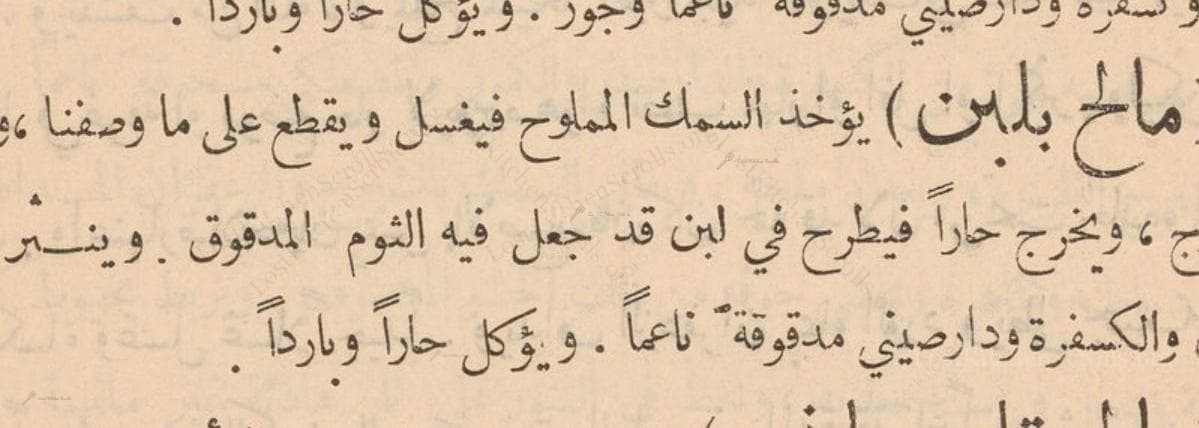 كسفرة ودارصيني مدقوقة ناعماً وجوز . ويؤكل حاراً وبارداً .
مالح بلبن ) يؤخذ السمك المملوح فيغسل و يقطع على ما وصفنا ،
، ويخرج حاراً فيطرح في لبن قد جعل فيه الثوم المدقوق . وينــثر
والكسفرة ودارصيني مدقوقة ناعماً . و يؤكل حاراً وبارداً .